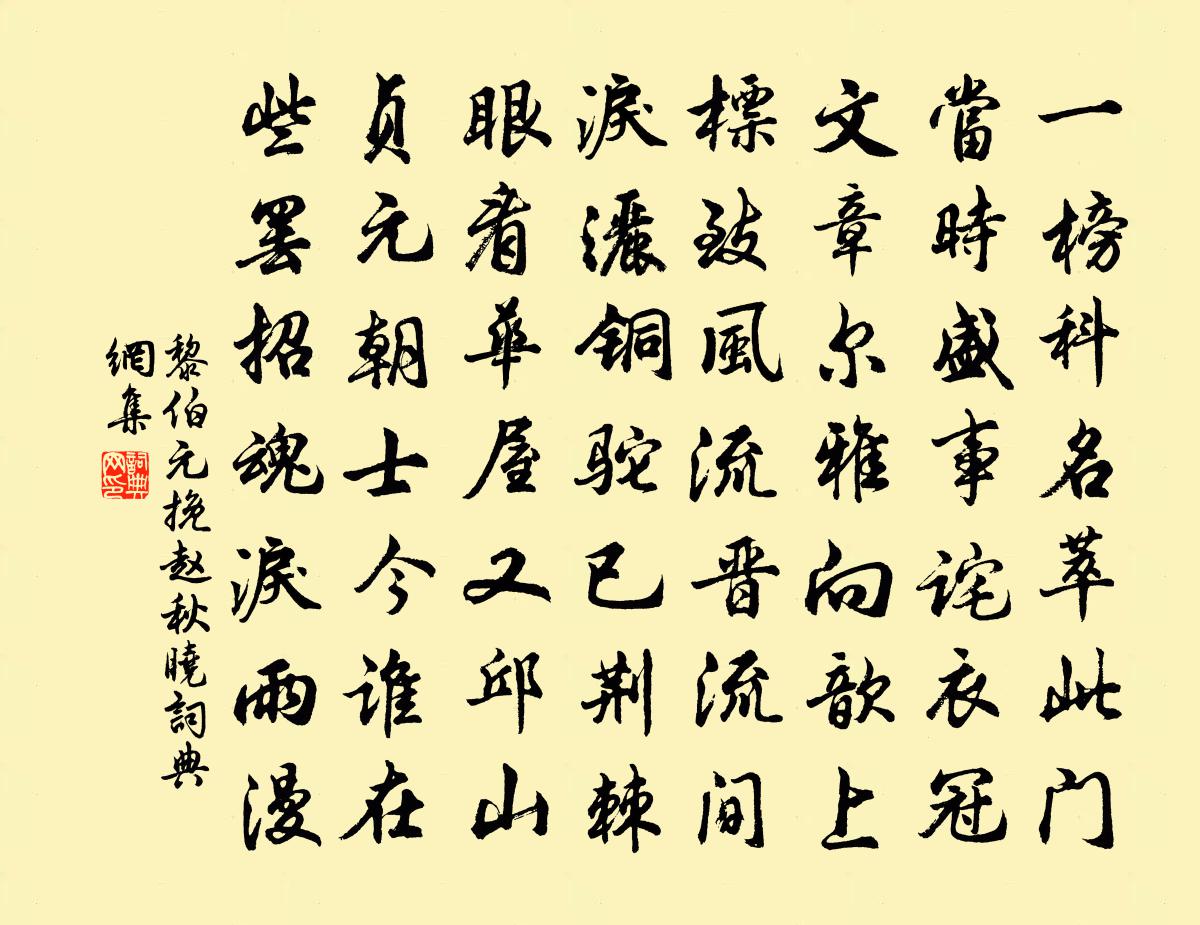 一榜科名萃此门
當時盛事詫衣冠
文章尔雅向歆上
標致風流晋流间
淚灑铜驼已荆棘
眼看華屋又邱山
贞元朝士今谁在
些罢招魂淚雨漫
黎伯元挽赵秋曉詞典
網集
詞典
网印